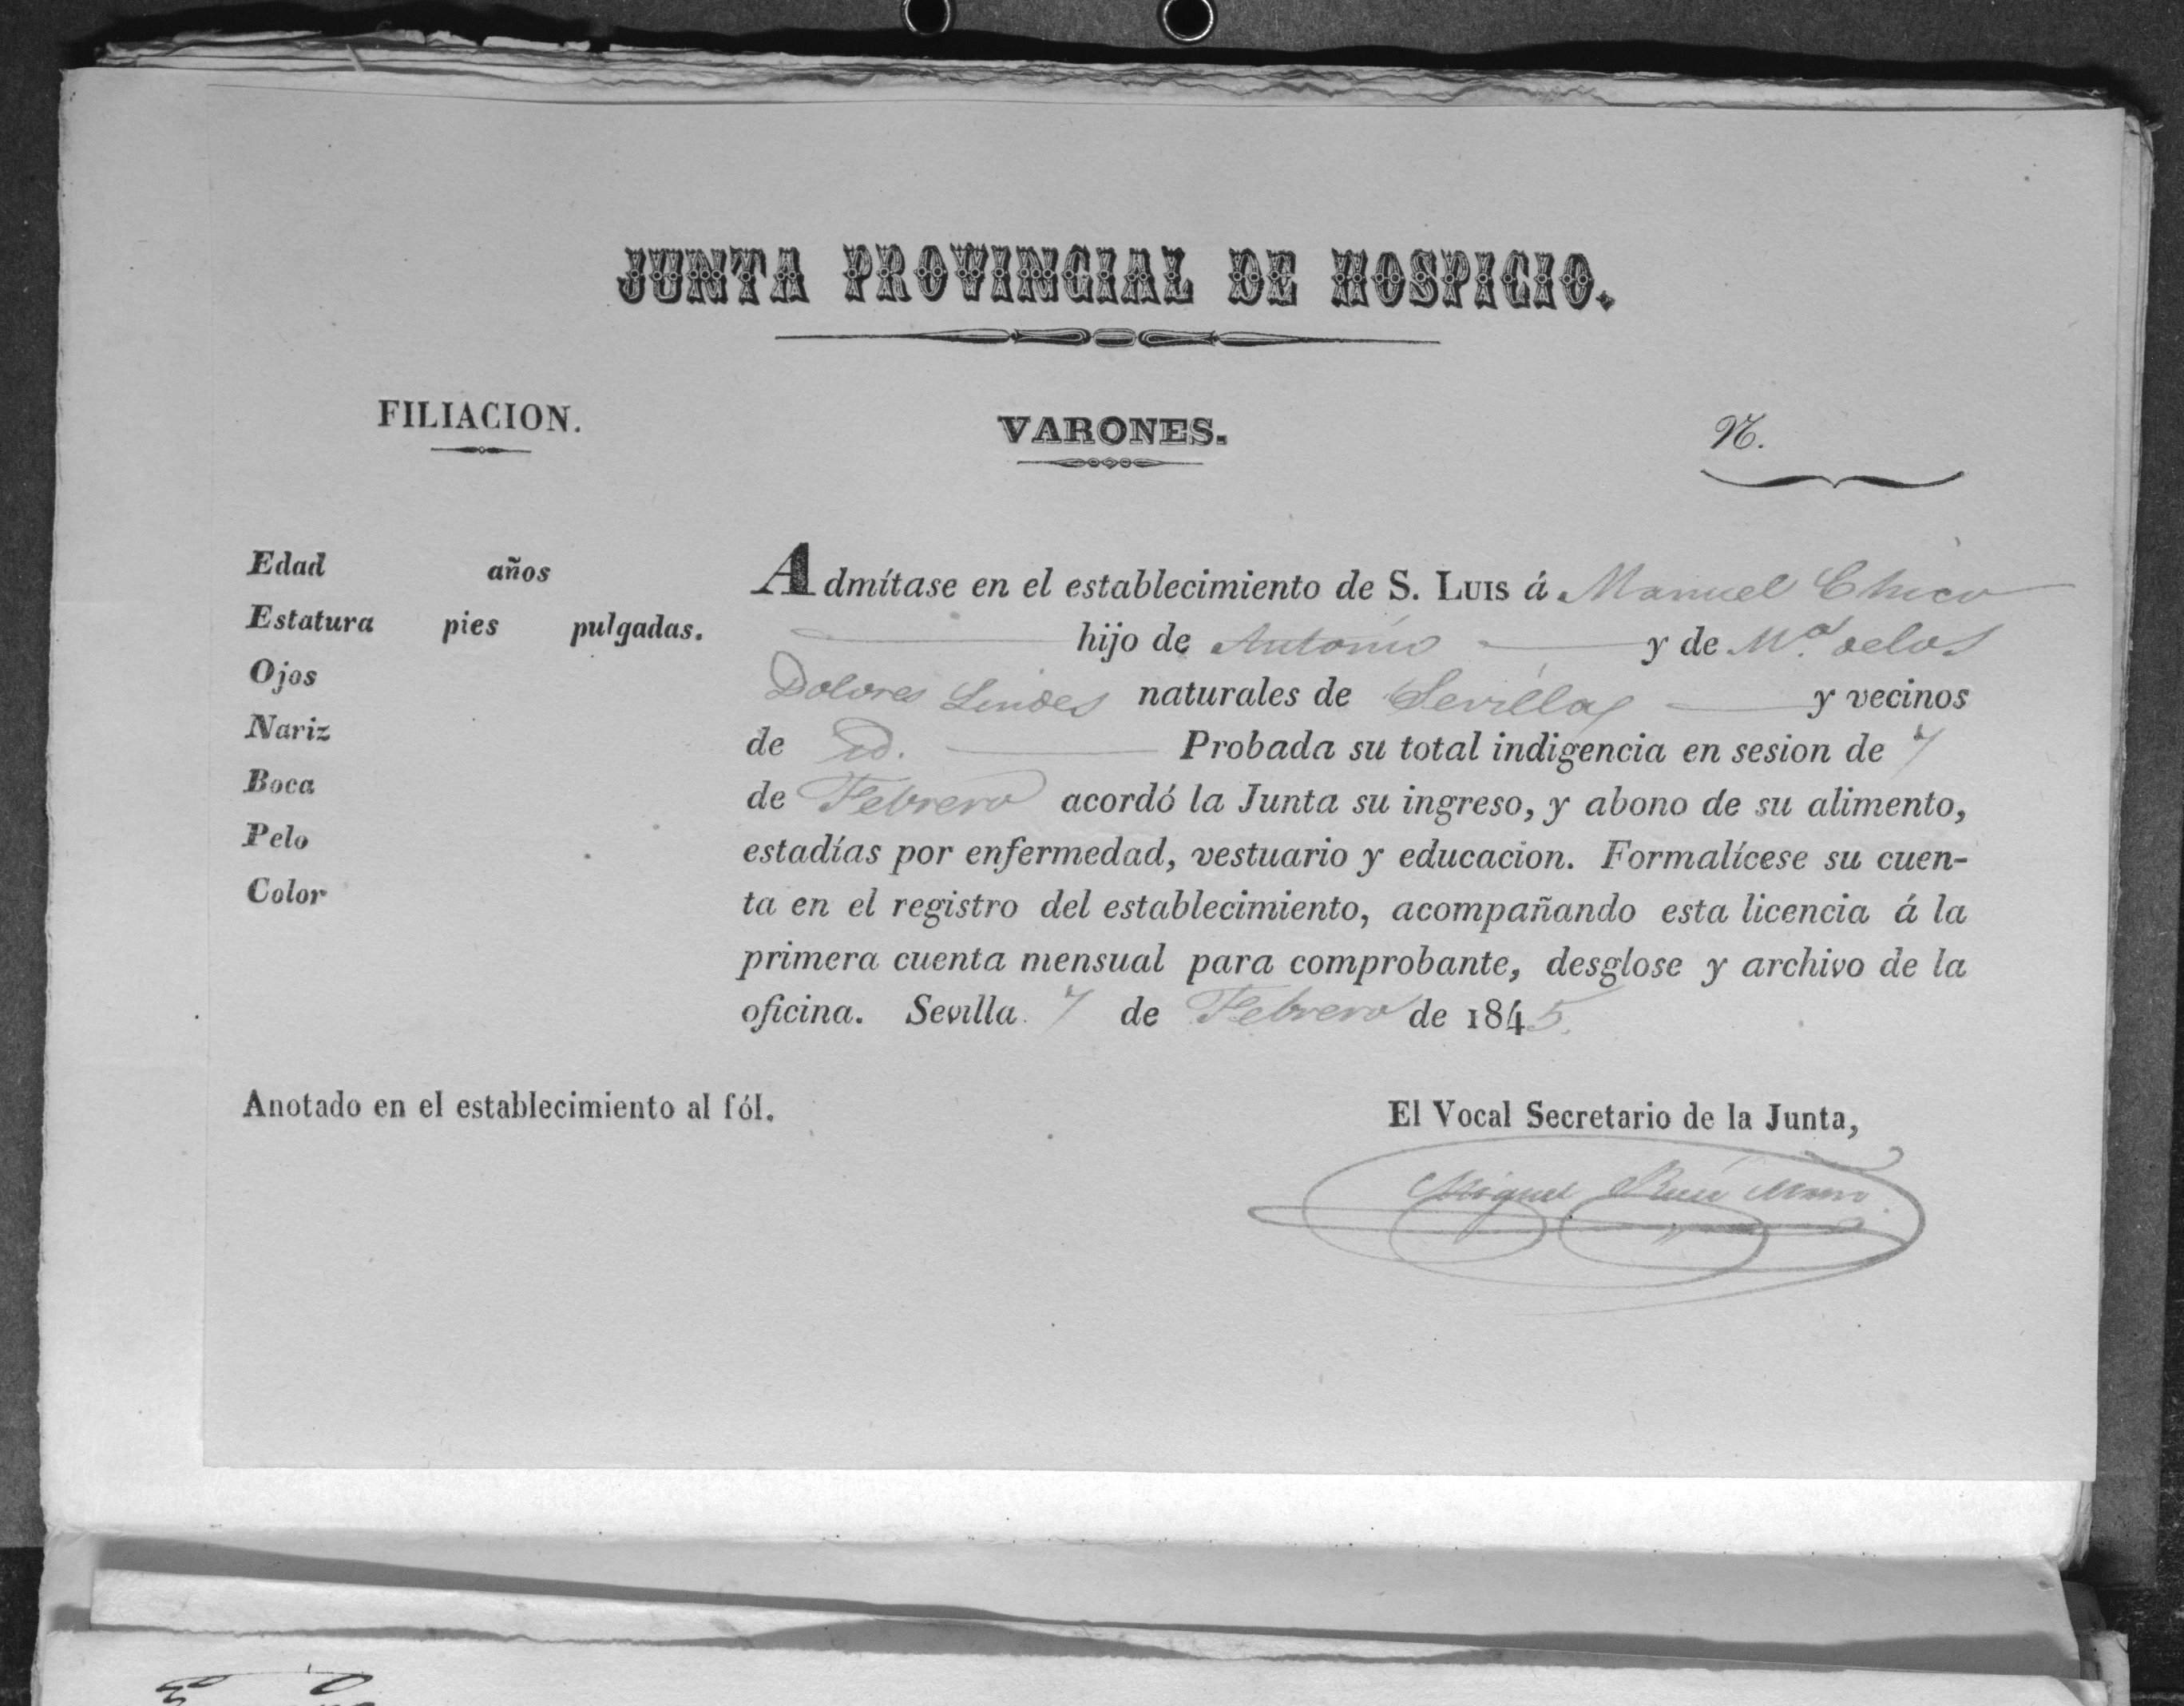 JUNTA PROVINCIAL DE HOSPICIO.
FILIACION.
VARONES.
N.
Edad años
Estatura pies pulgadas.
Ojos
Nariz
Boca
Pelo
Color
Admítase en el establecimiento de S. LUIS á Manuel Chico
hijo de Antonio y de Mª. delos
Dolores naturales de Sevilla y vecinos
de id. Probada su total indigencia en sesion de 7
de Febrero acordó la Junta su ingreso, y abono de su alimento,
estadías por enfermedad, vestuario y educacion. Formalícese su cuen-
ta en el registro del establecimiento, acompañando esta licencia á la
primera cuenta mensual para comprobante, desglose y archivo de la
oficina. Sevilla 7 de Febrero de 1845.
Anotado en el establecimiento al fól.
El Vocal Secretario de la Junta,
Miguel